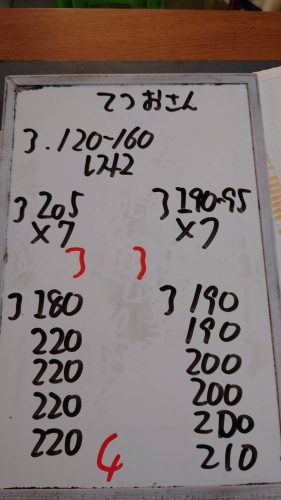 てつおさん
3.120-160
1242
3 205
×7
3
3 190-95
×7
3
3 180
220
220
220
220
4
3 190
190
200
200
200
210